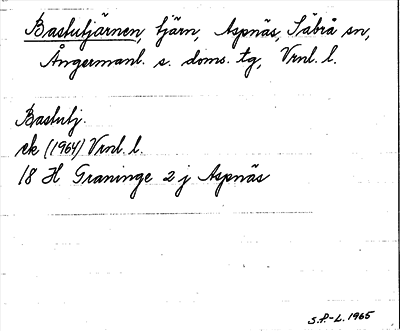 Bastutjärnen, tjärn, Aspnäs, Säbrå sn,
Ångermanl. s. doms. tg, Vrnl. l.
Bastutj.
ek (1964) Vrnl. l.
18 H Graninge 2 j Aspnäs
S.P.-L. 1965